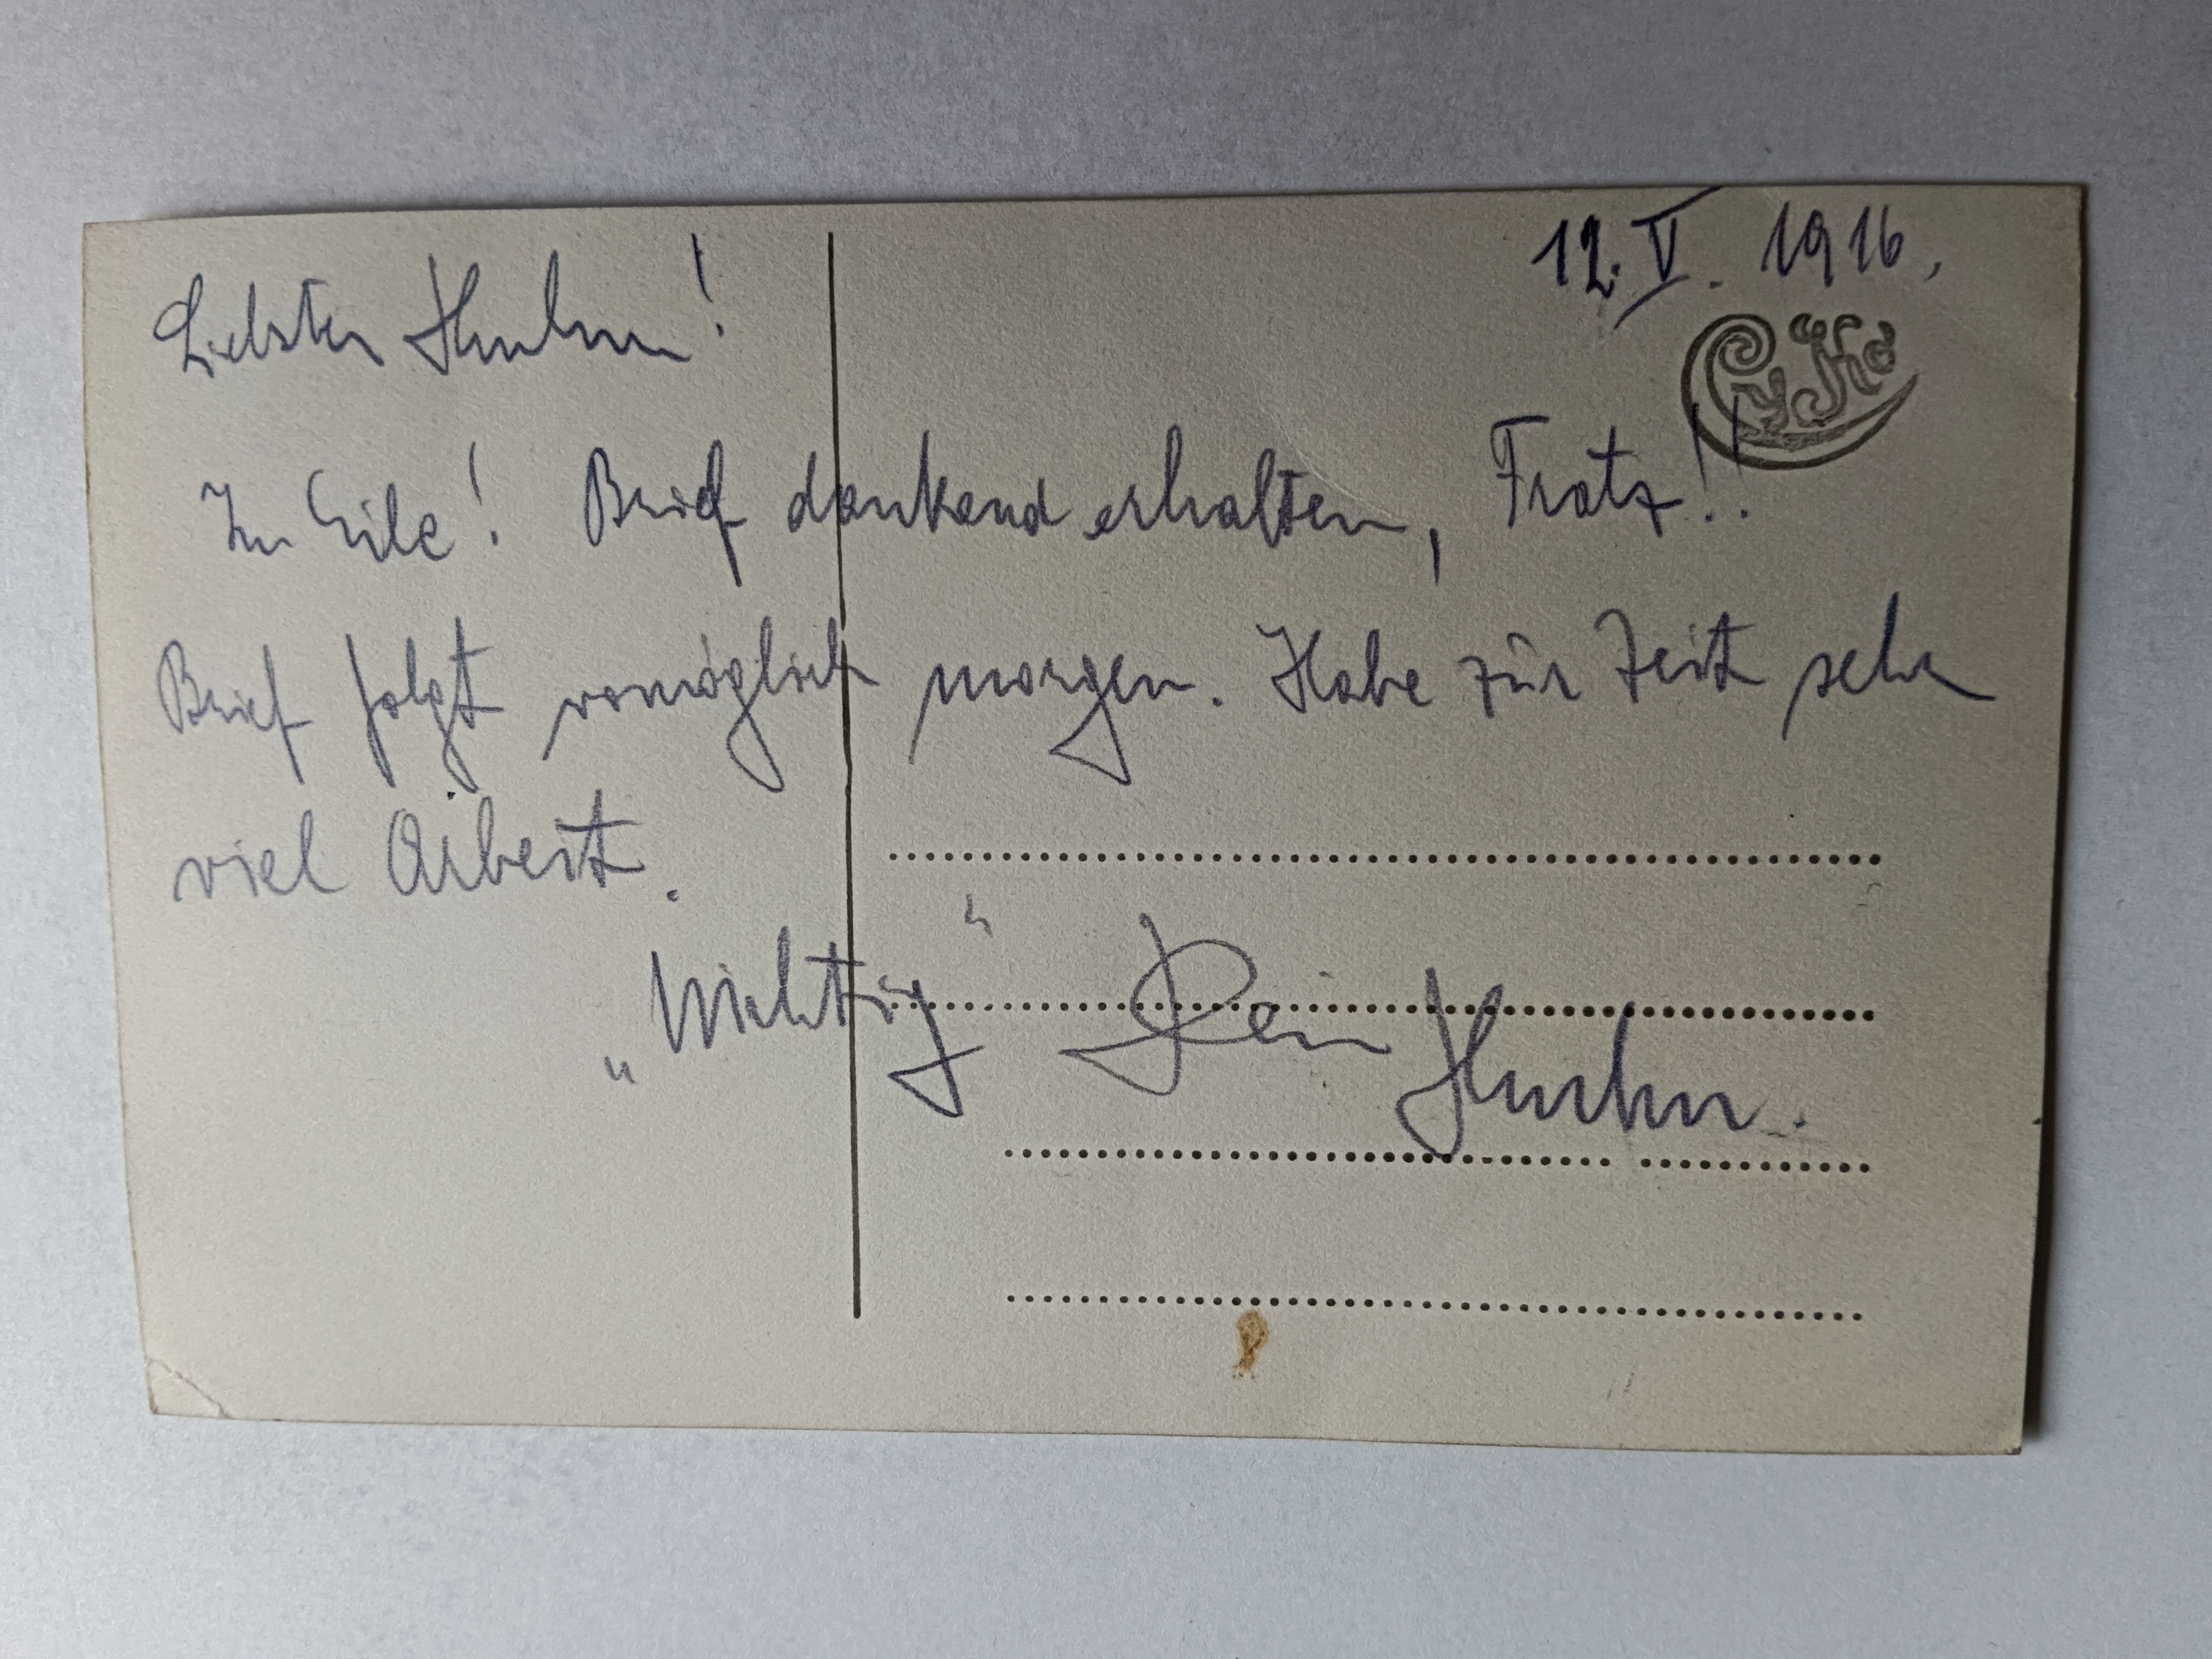 12. V. 1916.
Liebster Huhn!
In Eile! Brief dankend erhalten, Fratz!!
Brief folgt womöglich morgen. Habe zur Zeit sehr
viel Arbeit.
„Wichtig" Dein Huhn.